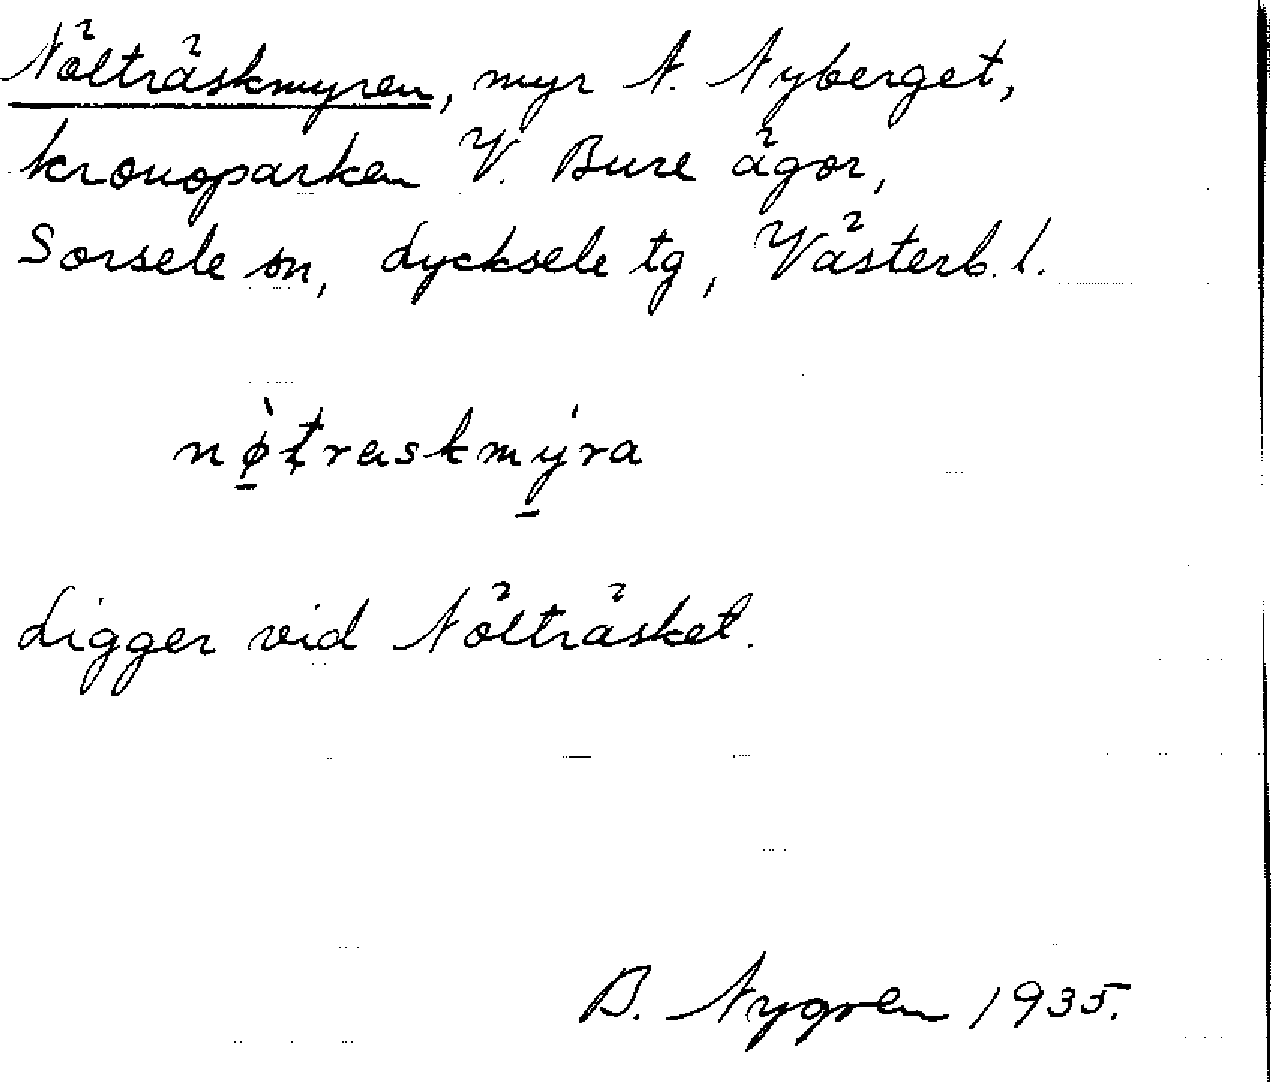 Nölträskmyren, myr N. Nyberget,
kronoparken V. Bure ägor,
Sorsele sn, Lycksele tg, Västerb. l.
nø̠̀t̨raskmý̠ra
Ligger vid Nölträsket.
B. Nygren 1935.